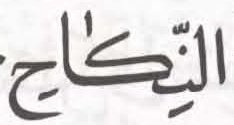 النِّكَاح